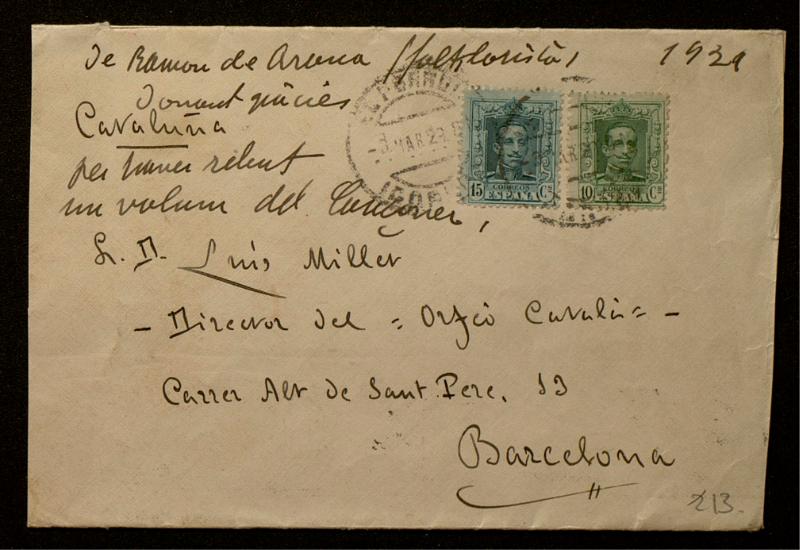 de Ramon de Arana (folklorista) 1929
donant gràcies
Cataluña
per haver rebut
un volum del Cançoner,
EL FERROL
MAR 29
15 CORREOS Cs
ESPAÑA
10 CORREOS Cs
ESPAÑA
Sr. D. Luís Millet
- Director del "Orfeó Català" -
Carrer Alt de Sant Pere, 13
Barcelona
213.